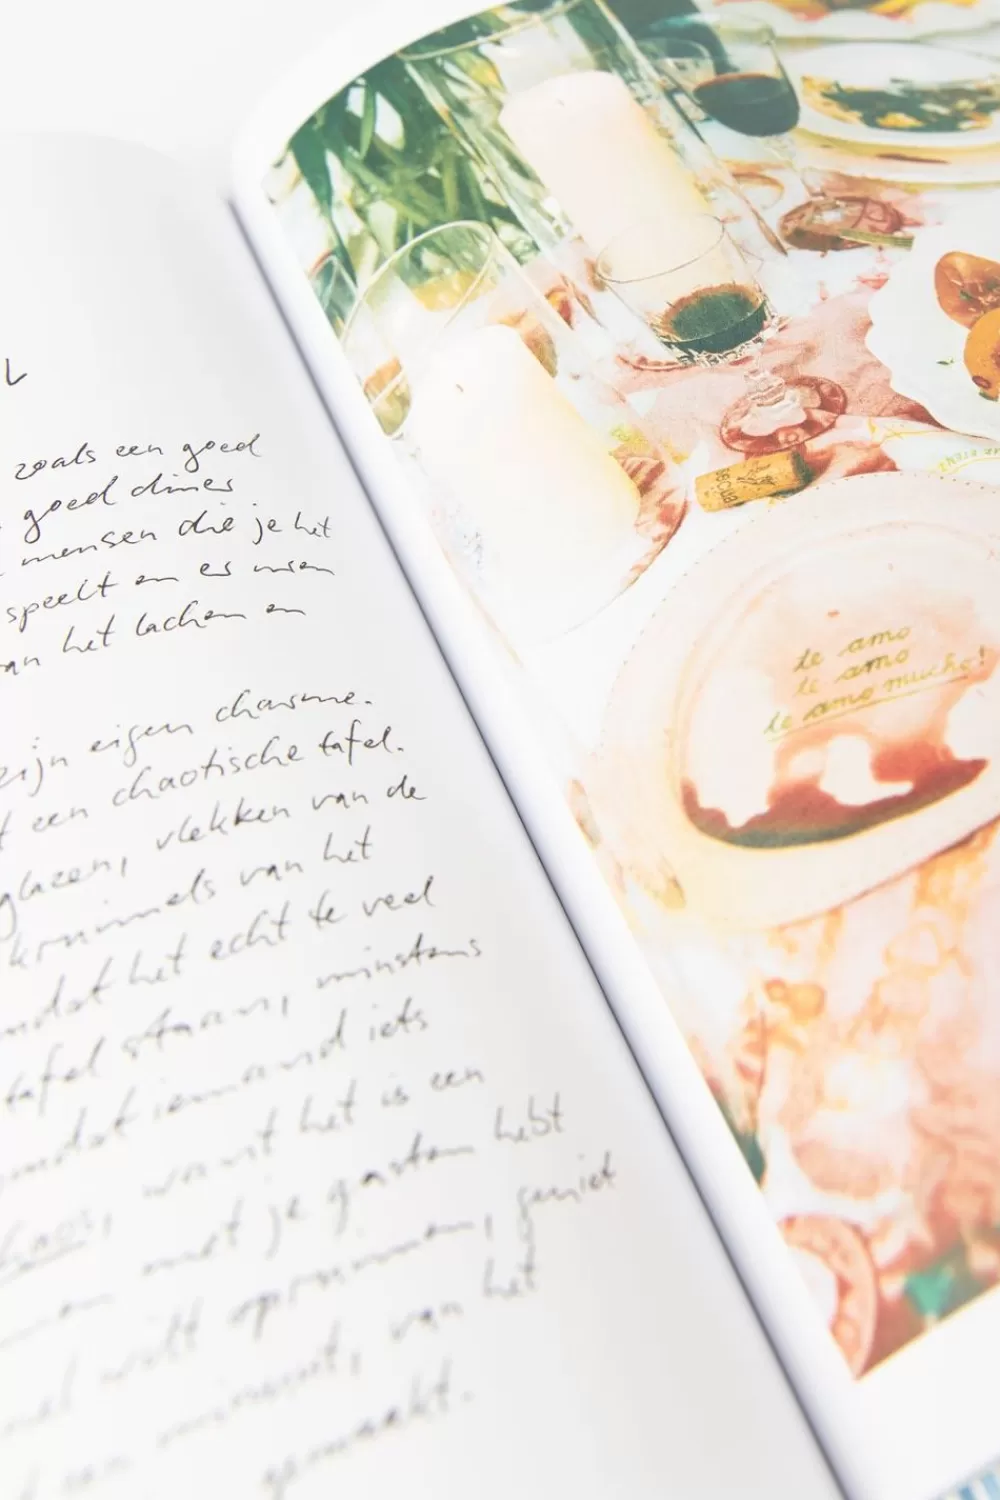 L
zoals een goed
goed diner
mensen die je het
speelt en er
van het lachen en
zijn eigen charme.
een chaotische tafel.
glazen, vlekken van de
kruimels van het
omdat het echt te veel
tafel staan, minstens
omdat iemand iets
chaos, want het is een
met je gasten hebt
wilt opruimen, geniet
een minuut, van het
gemaakt.
te amo
te amo
te amo mucho!